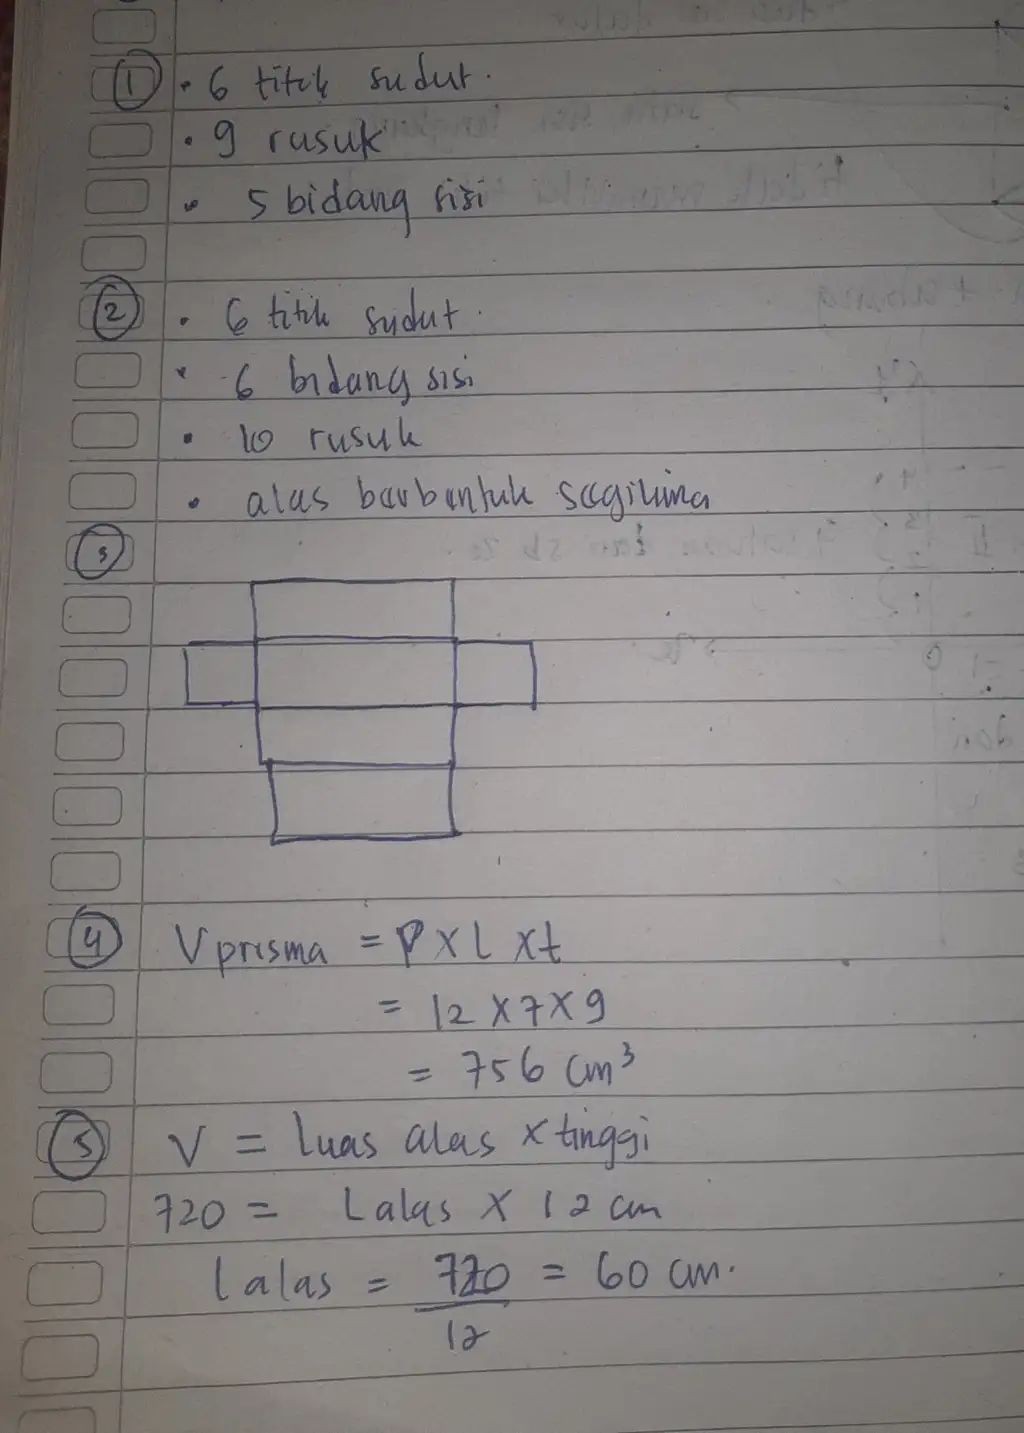 ① • 6 titik sudut.
• 9 rusuk
• 5 bidang sisi
② • 6 titik sudut.
• 6 bidang sisi
• 10 rusuk
• alas berbentuk segilima
③
④ V prisma = P x L x t
= 12 x 7 x 9
= 756 cm³
⑤ V = Luas alas x tinggi
720 = Lalas x 12 cm
Lalas = 720/12 = 60 cm.